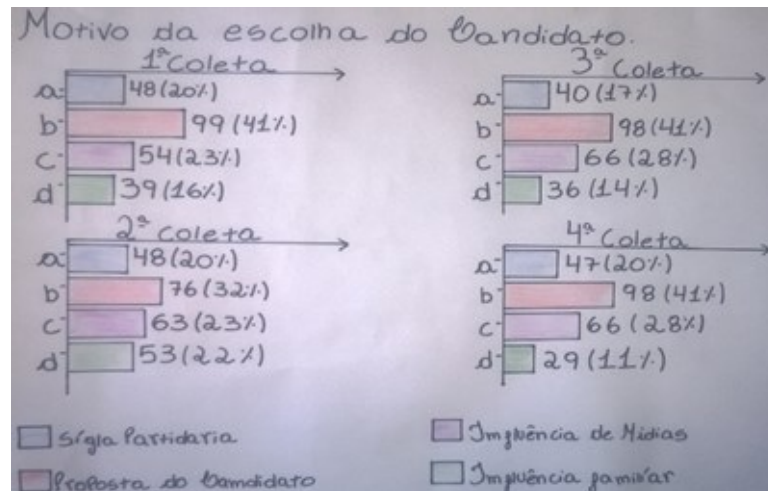 Motivo da escolha do Candidato.
1ª Coleta
a 48 (20%)
b 99 (41%)
c 54 (23%)
d 39 (16%)
2ª Coleta
a 48 (20%)
b 76 (32%)
c 63 (23%)
d 53 (22%)
3ª Coleta
a 40 (17%)
b 98 (41%)
c 66 (28%)
d 36 (14%)
4ª Coleta
a 47 (20%)
b 98 (41%)
c 66 (28%)
d 29 (11%)
Sígla Partidaria
Proposta do Camdidato
Imfluência de Mídias
Imfluência familiar